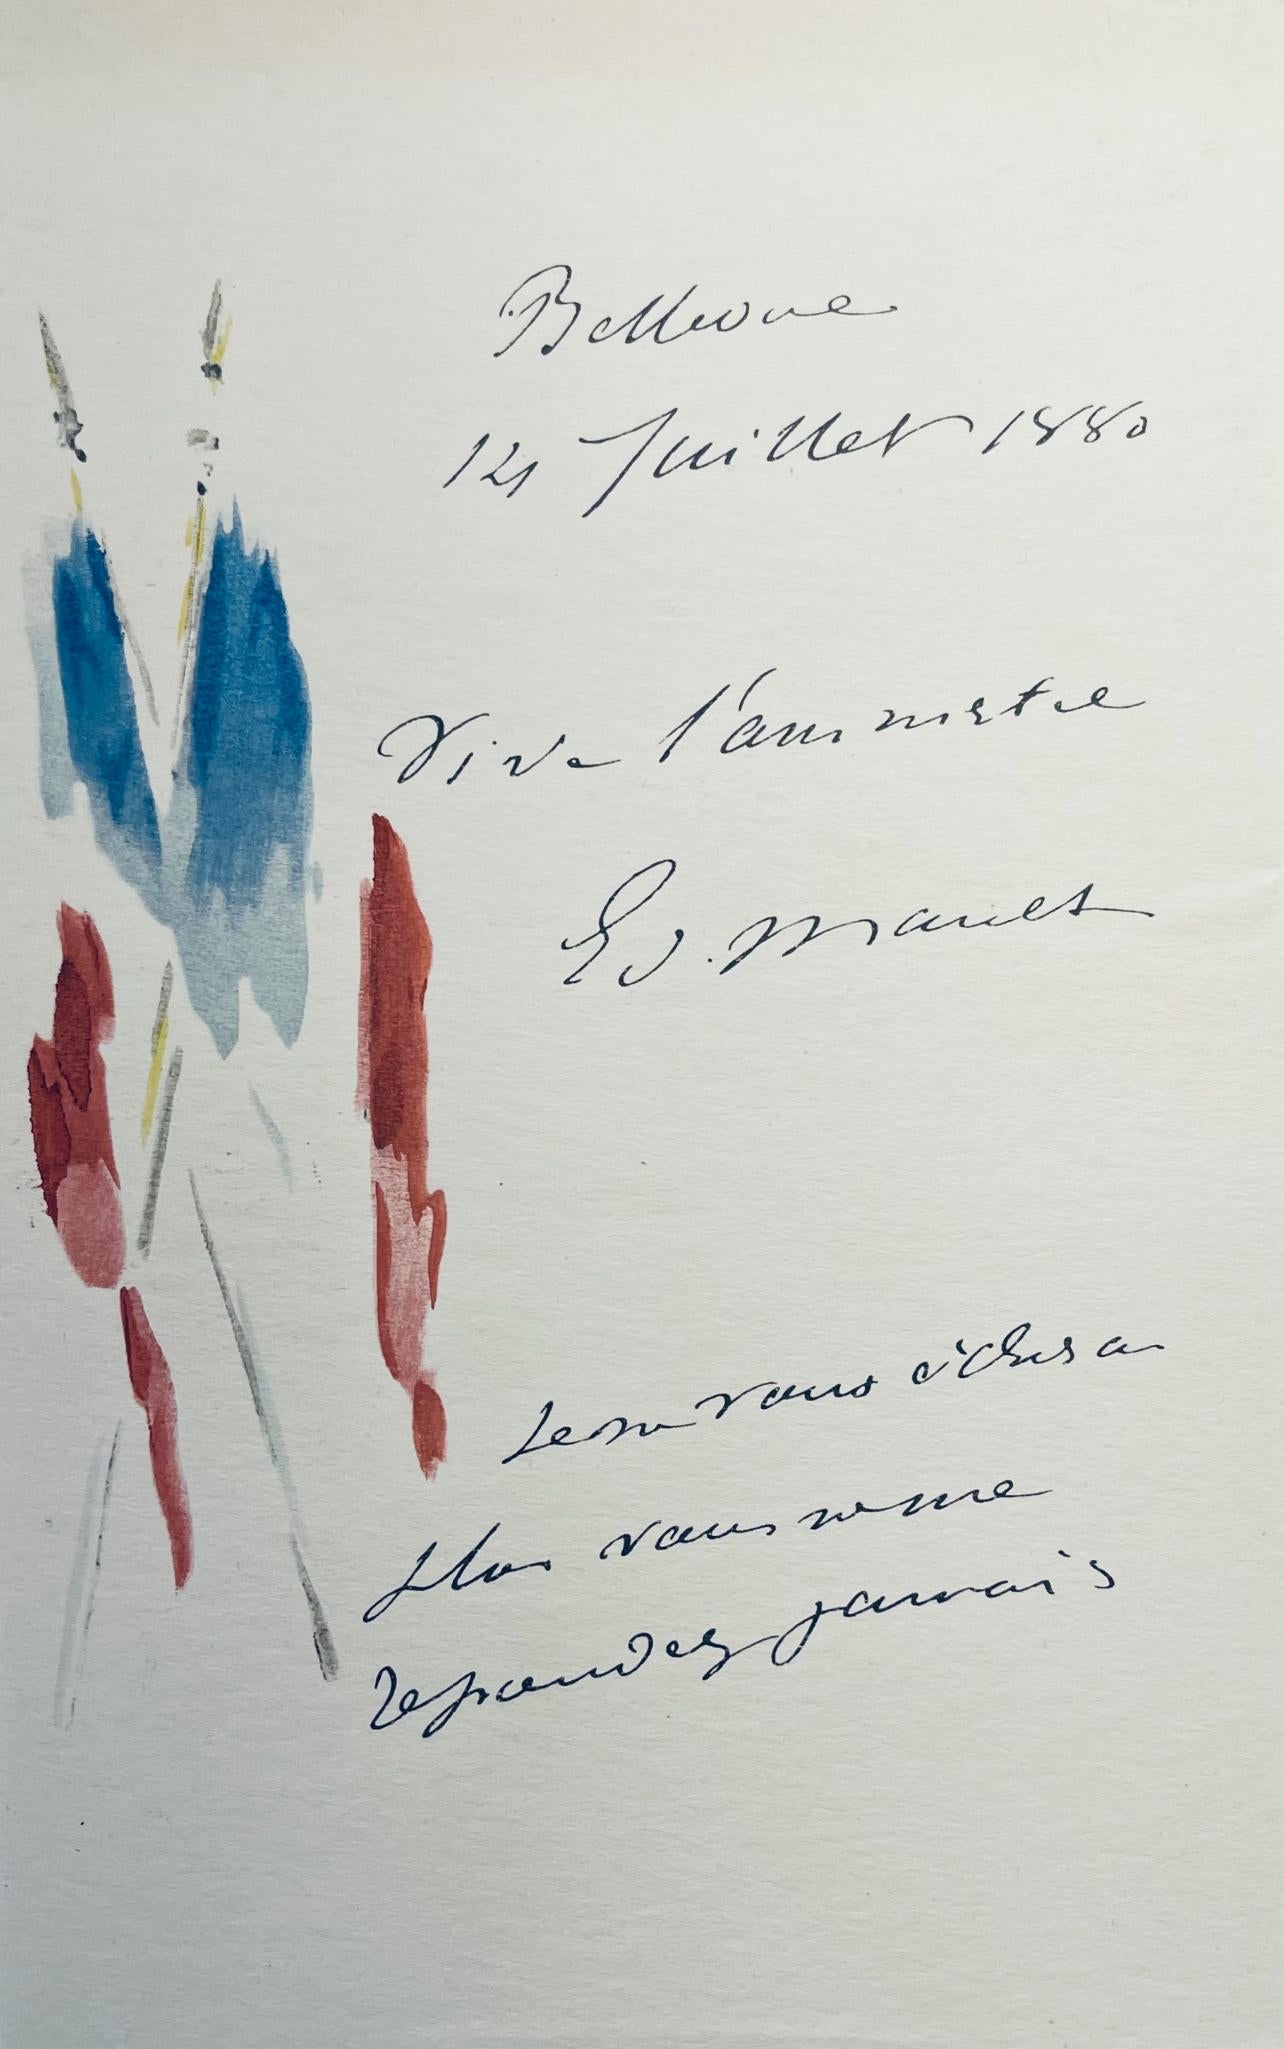 Bellevue
14 Juillet 1880
Vive l'amnistie
Ed. Manet
Je ne vous écrirai
plus vous ne me
repondez jamais